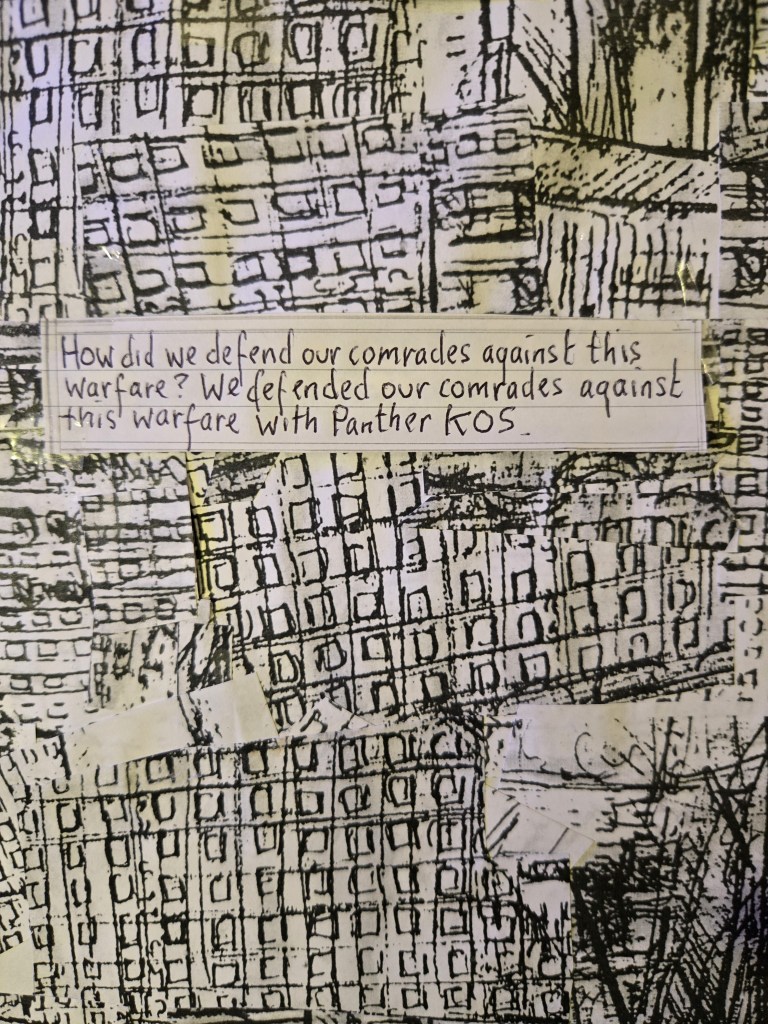 How did we defend our comrades against this
warfare? We defended our comrades against
this warfare with Panther KOS.